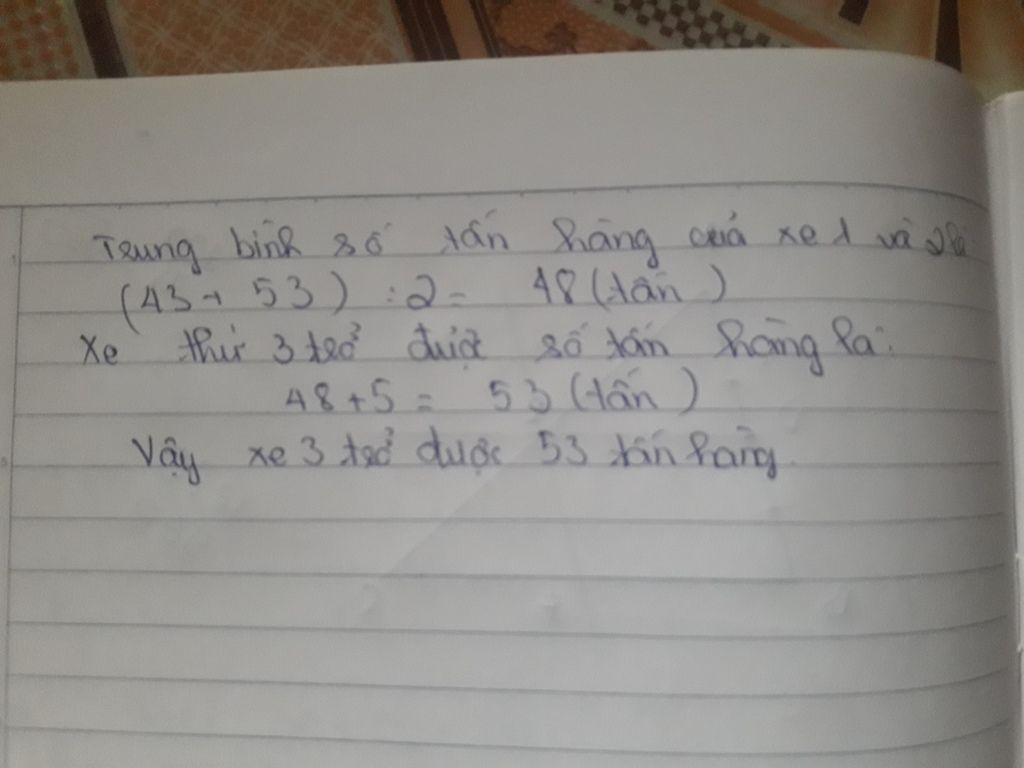 Trung bình số tấn hàng của xe 1 và 2 là
(43 + 53) : 2 = 48 (tấn)
Xe thứ 3 trở được số tấn hàng là:
48 + 5 = 53 (tấn)
Vậy xe 3 trở được 53 tấn hàng.